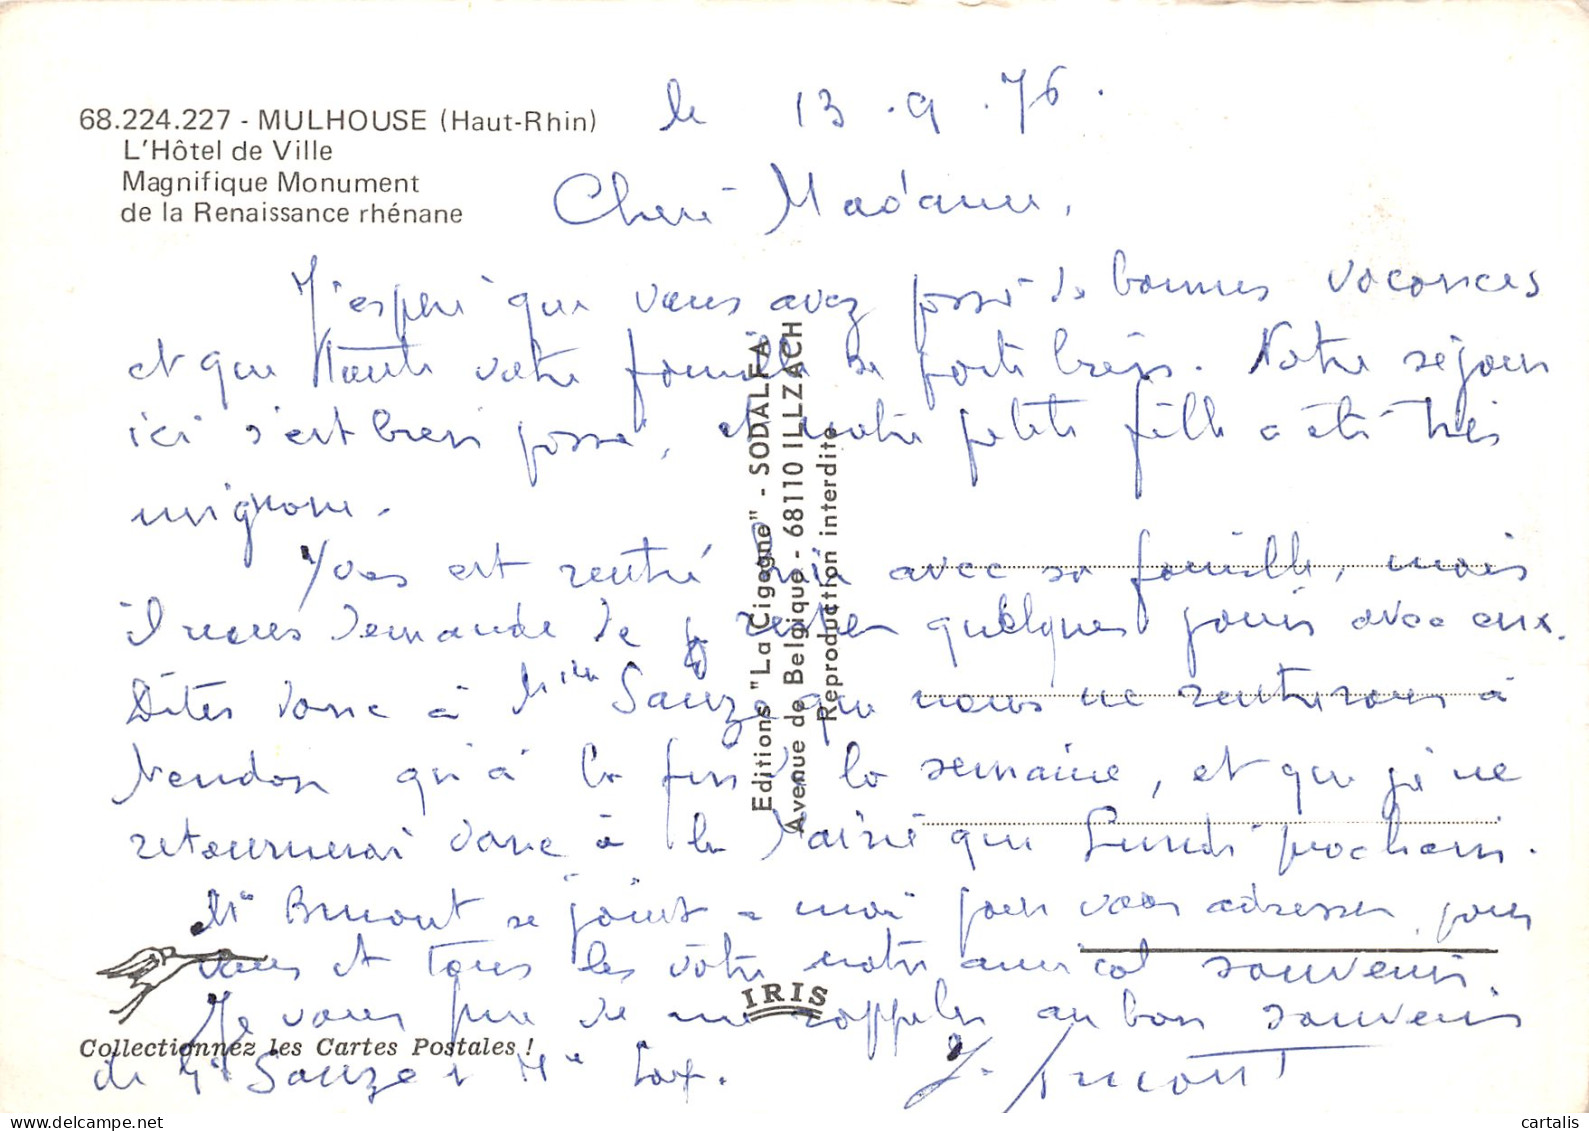 68.224.227 - MULHOUSE (Haut-Rhin)
L'Hôtel de Ville
Magnifique Monument
de la Renaissance rhénane
le 13.9.76.
Chère Madame,
J'espère que vous avez passé de bonnes vacances
et que toute votre famille se porte bien. Notre séjour
ici s'est bien passé, et notre petite fille a été très
mignonne.
Yves est rentré hier avec sa famille, mais
il nous demande de rester quelques jours avec eux.
Dites donc à Mme Sauze que nous ne rentrerons à
qu'à la fin de la semaine, et que je ne
retournerai donc à la Mairie que Lundi prochain.
Mr se joint à moi pour vous adresser pour
vous et tous les vôtres notre amical souvenir.
Je vous prie de me rappeler au bon souvenir
de Sauze et
Editions "La Cigogne" - SODALFA
Avenue de Belgique - 68110 ILLZACH
Reproduction interdite
IRIS
Collectionnez les Cartes Postales !
cartalis